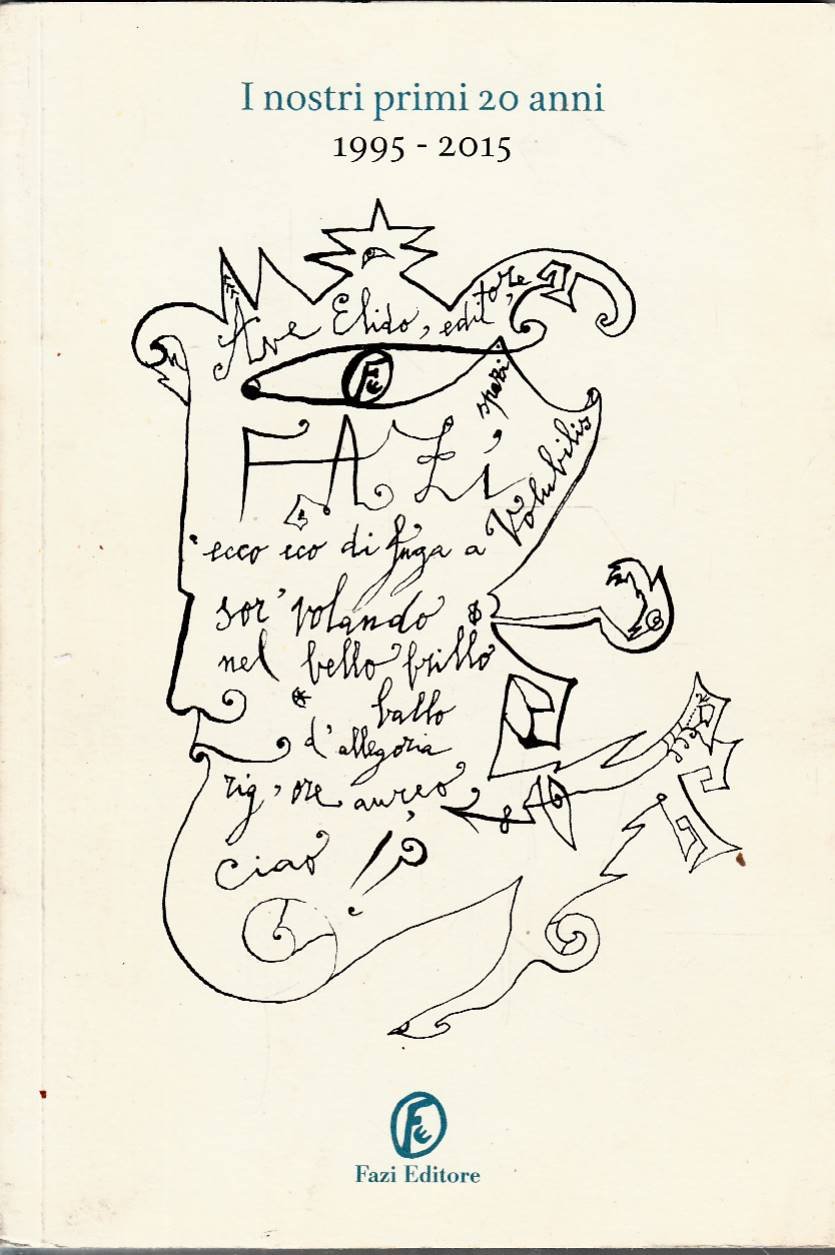 I nostri primi 20 anni
1995 - 2015
Ave Elido, editore,
spazi
FAZI,
Volubilis
ecco eco di fuga a
sor'volando
nel bello brillo
ballo
d'allegoria
rig'ore aureo,
ciao !?
Fe
Fazi Editore